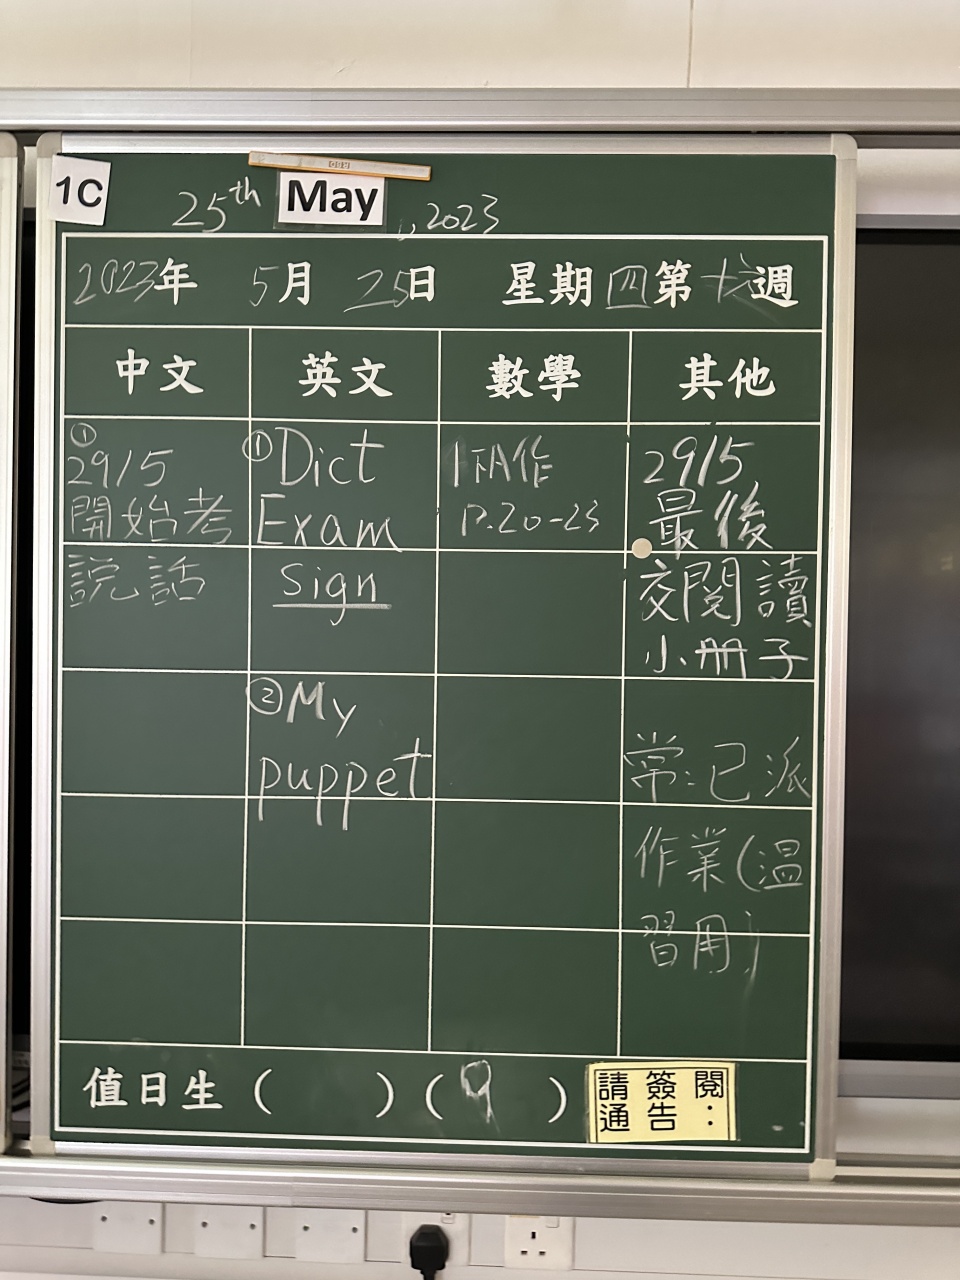 1C
25th May, 2023
2023年 5月 25日 星期四第十六週
中文 英文 數學 其他
① 29/5
開始考
説話
① Dict
Exam
sign
② My
puppet
P.20-23
29/5
最後
交閱讀
小冊子
常:已派
作業(温
習用)
值日生 ( ) ( 9 )
請簽閱
通告: